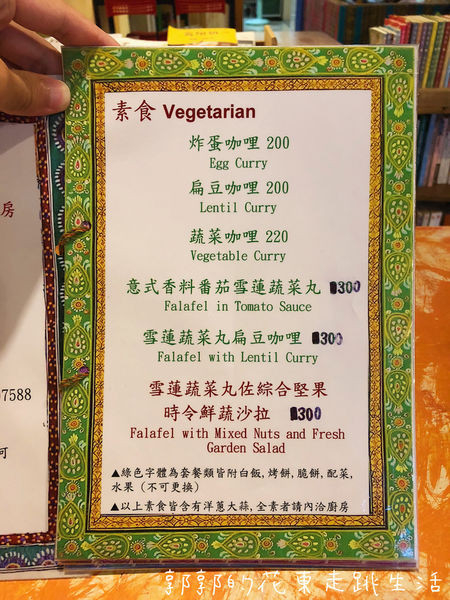 素食 Vegetarian
炸蛋咖哩 200
Egg Curry
扁豆咖哩 200
Lentil Curry
蔬菜咖哩 220
Vegetable Curry
意式香料番茄雪蓮蔬菜丸 300
Falafel in Tomato Sauce
雪蓮蔬菜丸扁豆咖哩 300
Falafel with Lentil Curry
雪蓮蔬菜丸佐綜合堅果
時令鮮蔬沙拉 300
Falafel with Mixed Nuts and Fresh
Garden Salad
▲綠色字體為套餐類皆附白飯,烤餅,脆餅,配菜,
水果(不可更換)
▲以上素食皆含有洋蔥大蒜,全素者請內洽廚房
房
07588
可
郭郭的花東走跳生活